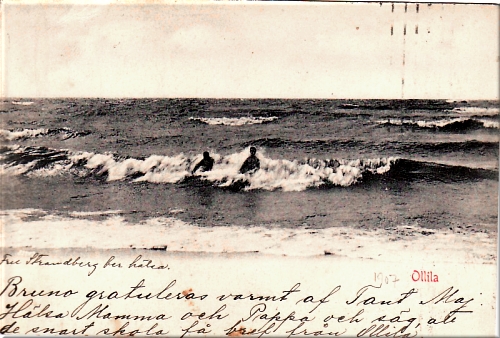 1902 Ollila
Strandberg ber hälsa.
Bruno gratuleras varmt af Tant Maj
Hälsa Mamma och Pappa och säg, att
de snart skola få bref från Ollila